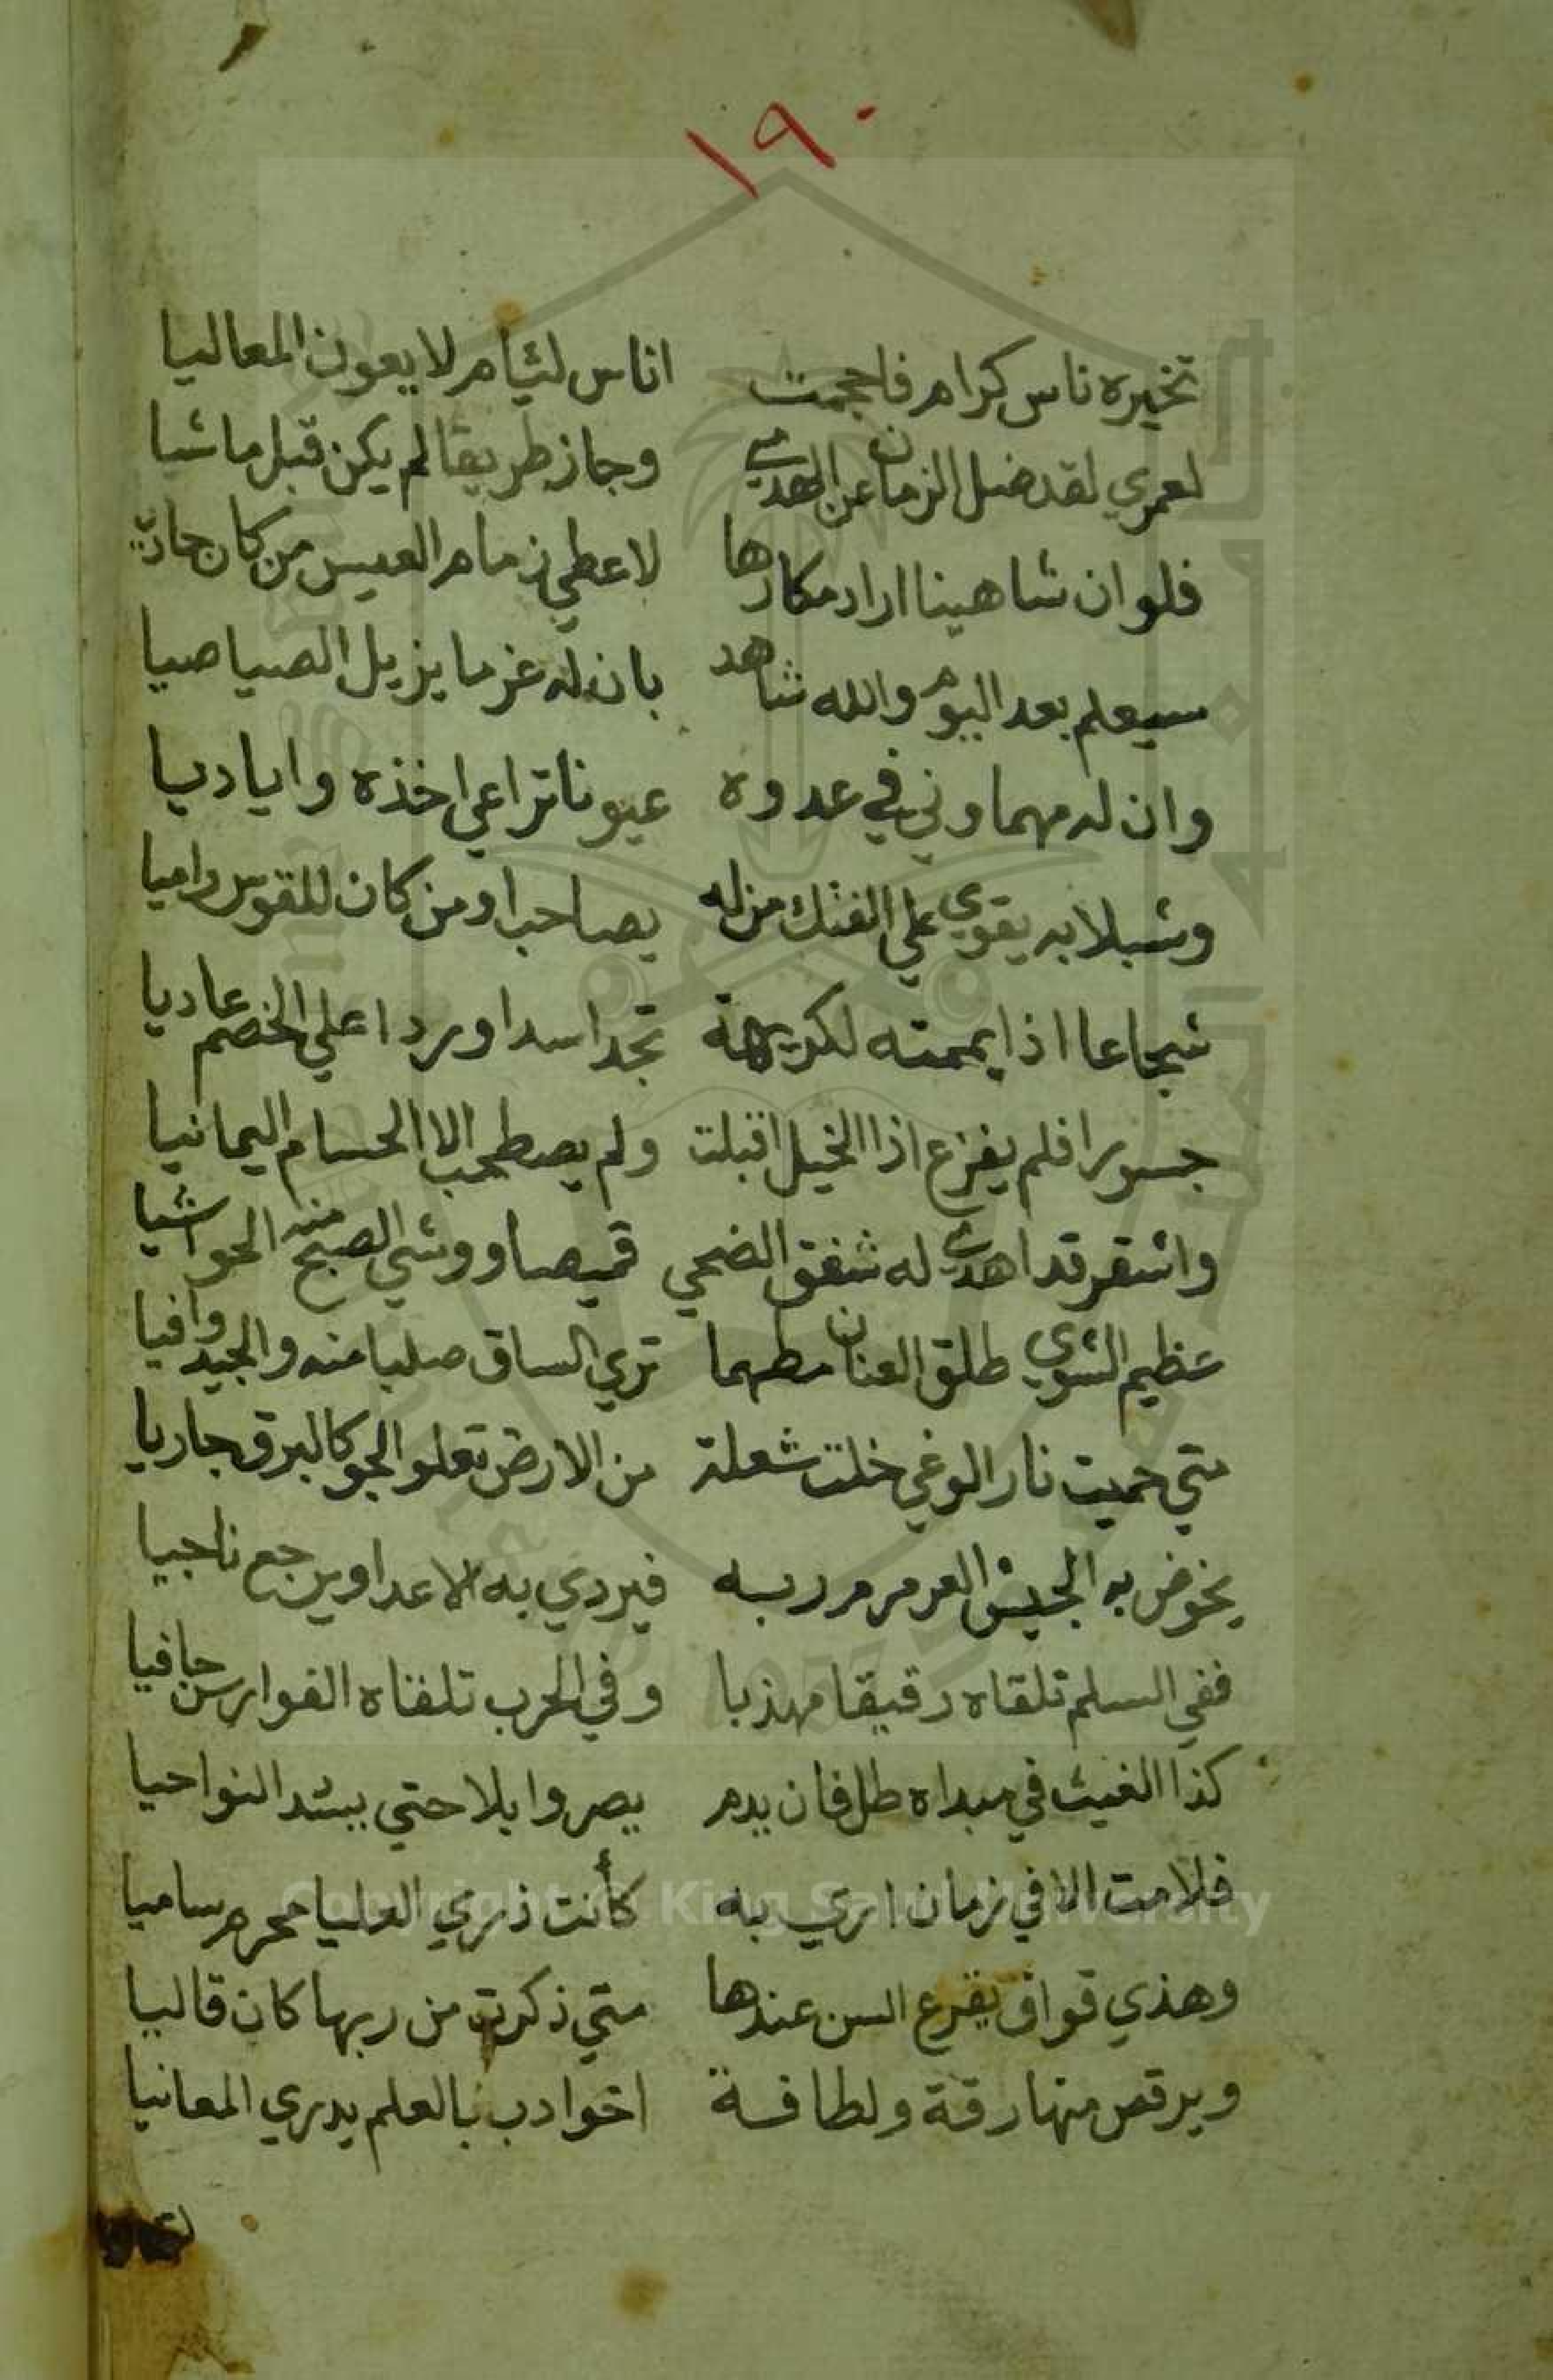 ١٩٠
تخيره ناس كرام فاحجمت اناس لئيام لا يعون المعاليا
لعمري لقد ضل الزمان عن الهدي وجاز طريقا لم يكن قبل ماشيا
فلو ان شاهينا اراد مكارها لاعطي زمام العيس من كان
سيعلم بعد اليوم والله شاهد بان له عزما يزيل الصياصيا
وان له مهما وني في عدوه عيونا تراعي اخذه واياديا
وشبلا به يقوي علي الفتك من له يصاحب او من كان للقوس راميا
شجاعا اذا يممته لكريهة تجد اسدا وردا علي الخصم عاديا
جسورا فلم يفزع اذا الخيل اقبلت ولم يصطحب الا الحسام اليمانيا
واشقر قد اهدي له شفق الضحي قميصا ووشي الصبح منه الحواشيا
عظيم الشوي طلق العنان مطهما تري الساق صلبا منه والجيد وافيا
متي حميت نار الوغي خلت شعلة من الارض تعلو الجو كالبرق جاريا
يخوض به الجيش العرمرم ربه فيردي به الاعدا ويرجع ناجيا
ففي السلم تلقاه رقيقا مهذبا وفي الحرب تلقاه الفوارس جافيا
كذا الغيث في مبداه طل فان يدم يصر وابلا حتي يسد النواحيا
فلا مت الا في زمان اري به كأنت ذري العليا محرم ساميا
وهذي قواف يقرع السن عندها متي ذكرت من ربها كان قاليا
ويرقص منها رقة ولطافة اخو ادب بالعلم يدري المعانيا
Copyright © King Saud University